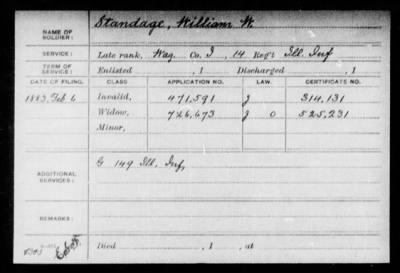 Standage, William W.
NAME OF SOLDIER:
SERVICE: Late rank, Wag. Co. I, 14 Reg't Ill. Inf
TERM OF SERVICE: Enlisted , 1 Discharged , 1
DATE OF FILING. CLASS. APPLICATION NO. LAW. CERTIFICATE NO.
1883, Feb 6 Invalid, 471,591 J 314,131
Widow, 726,673 J O 525,231
Minor,
ADDITIONAL SERVICES: G 149 Ill. Inf,
REMARKS:
Died , 1 , at